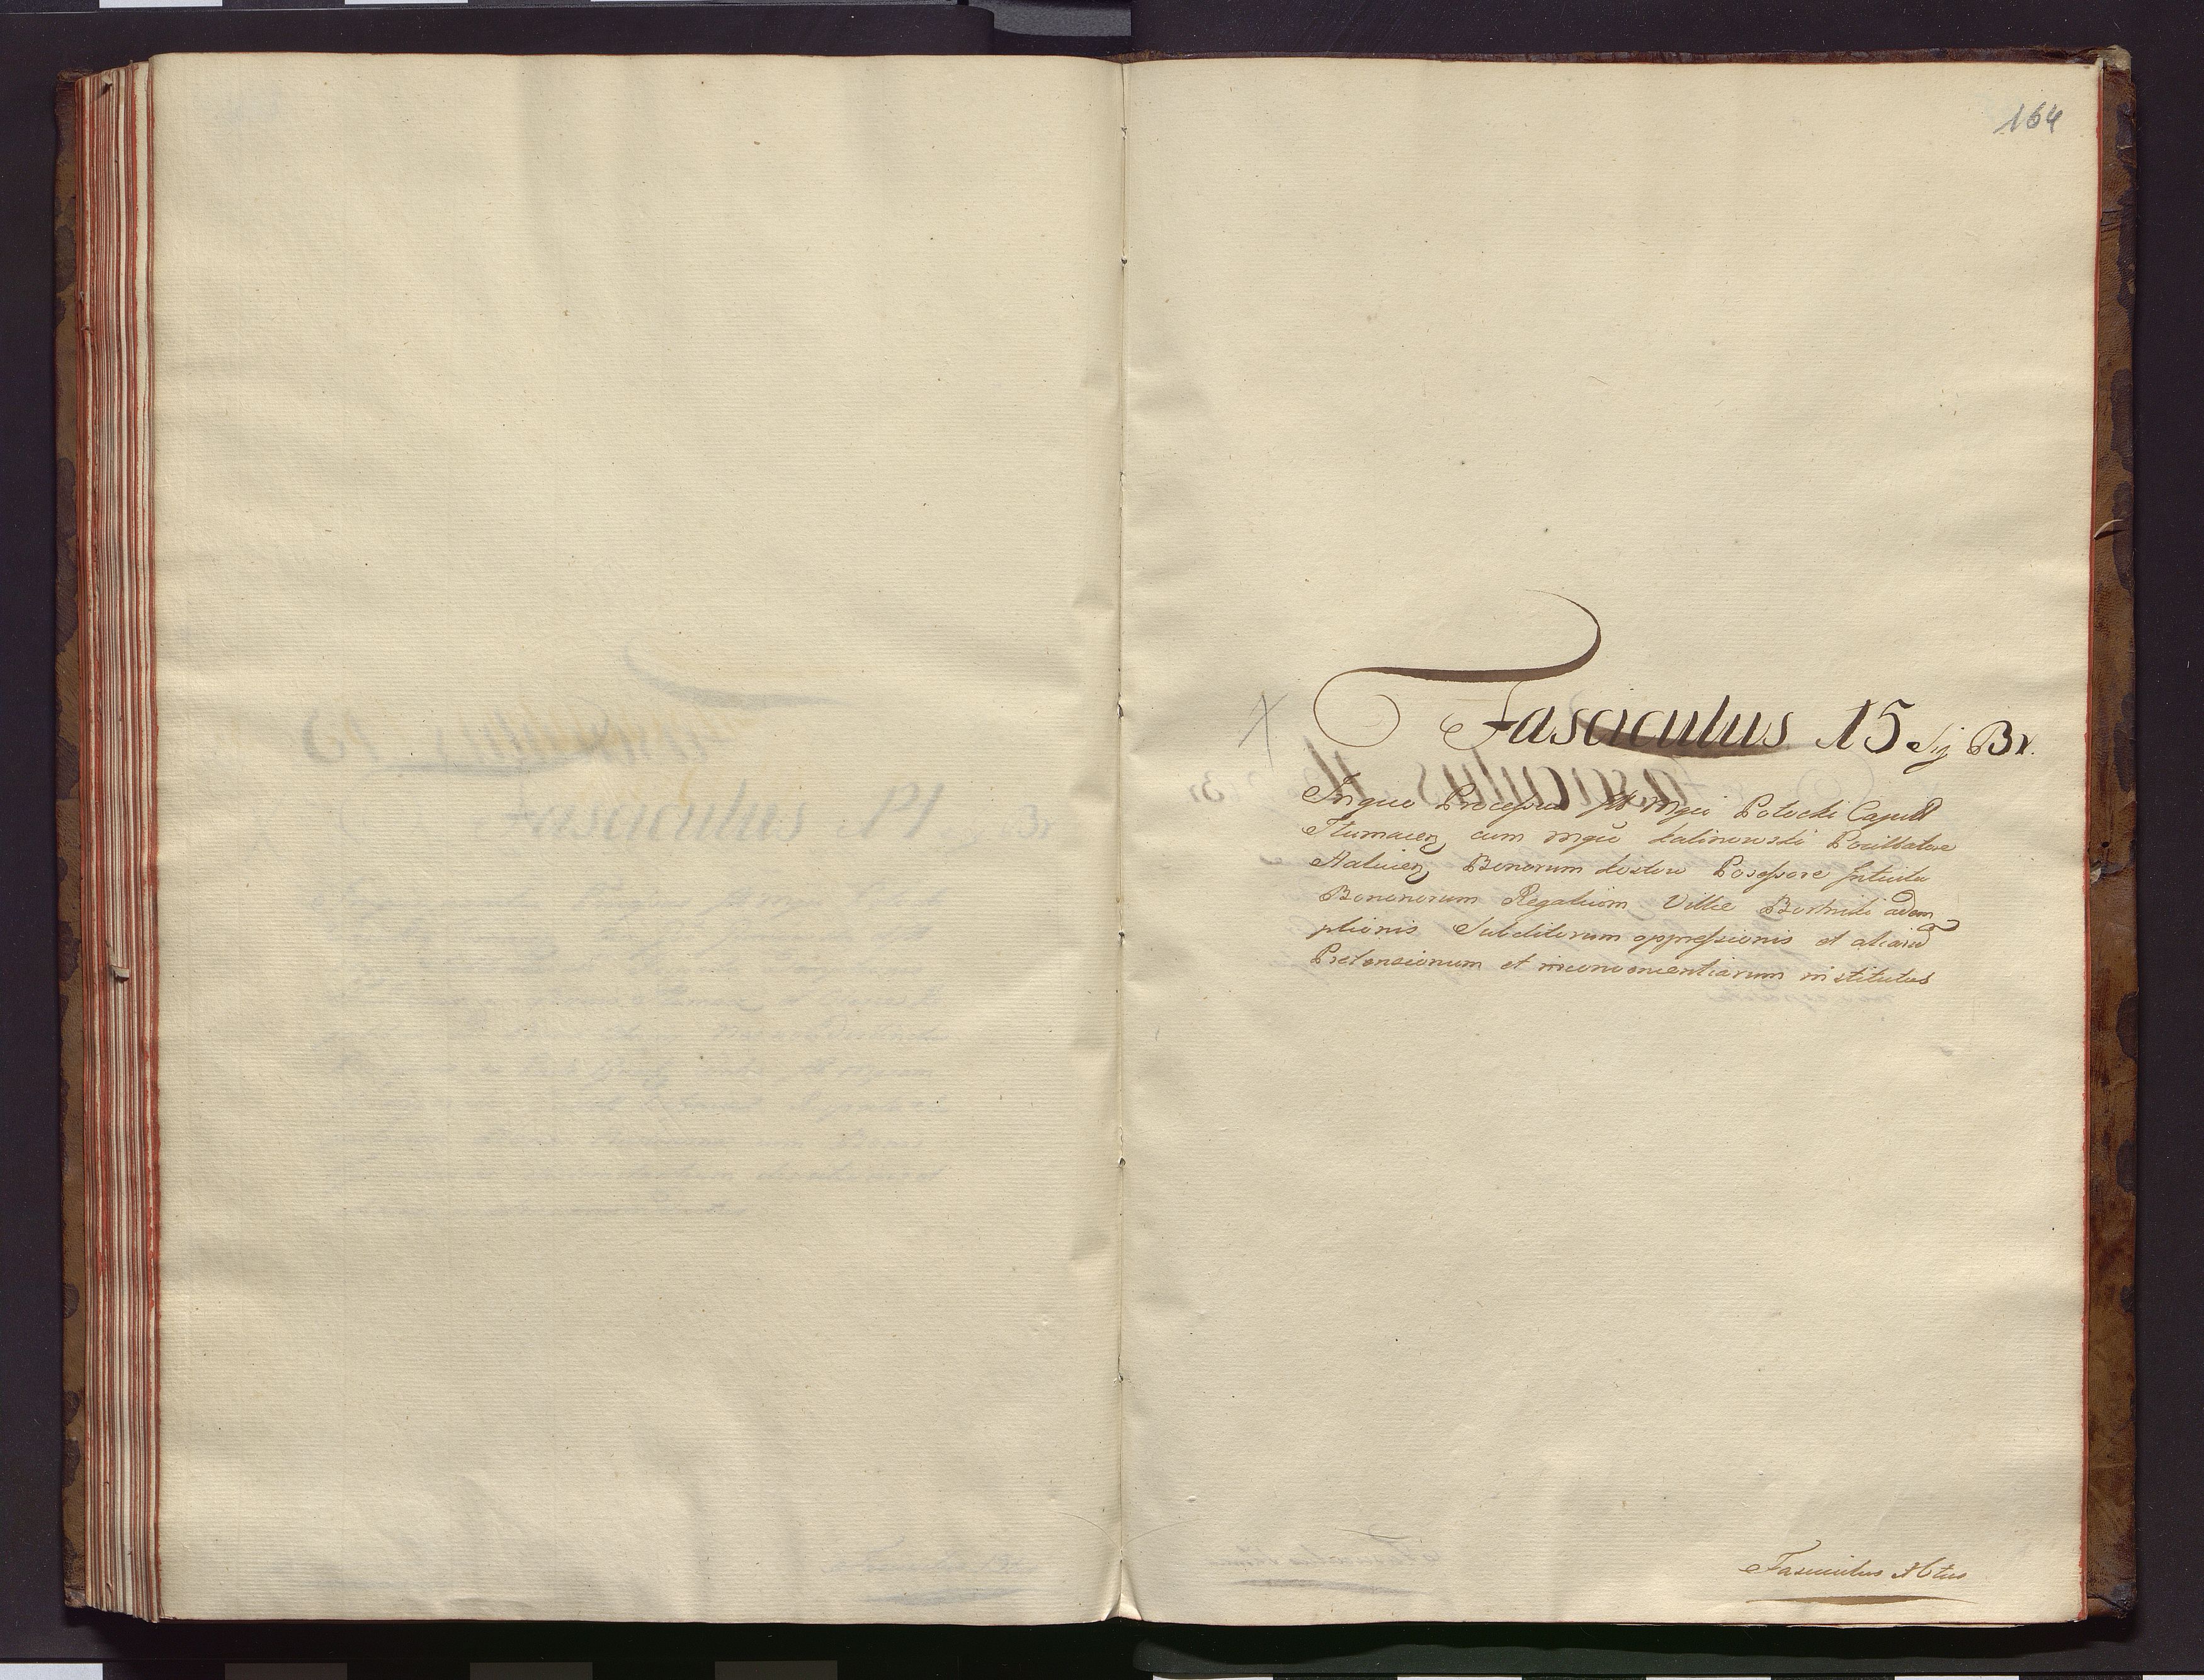 164
Fasciculus 15 Sig Br.
In quo Processus Mgci Potocki Capit
Tlumacen cum Mgco Kalinowski Pocillatore
Halicien Bonorum Possessore Intuitu
Bononorum Regalium Villae adem
ptionis Subditorum oppressionis et aliarū
Pretensionum et inconvenientiarum institutus
Fasciculus 16tus